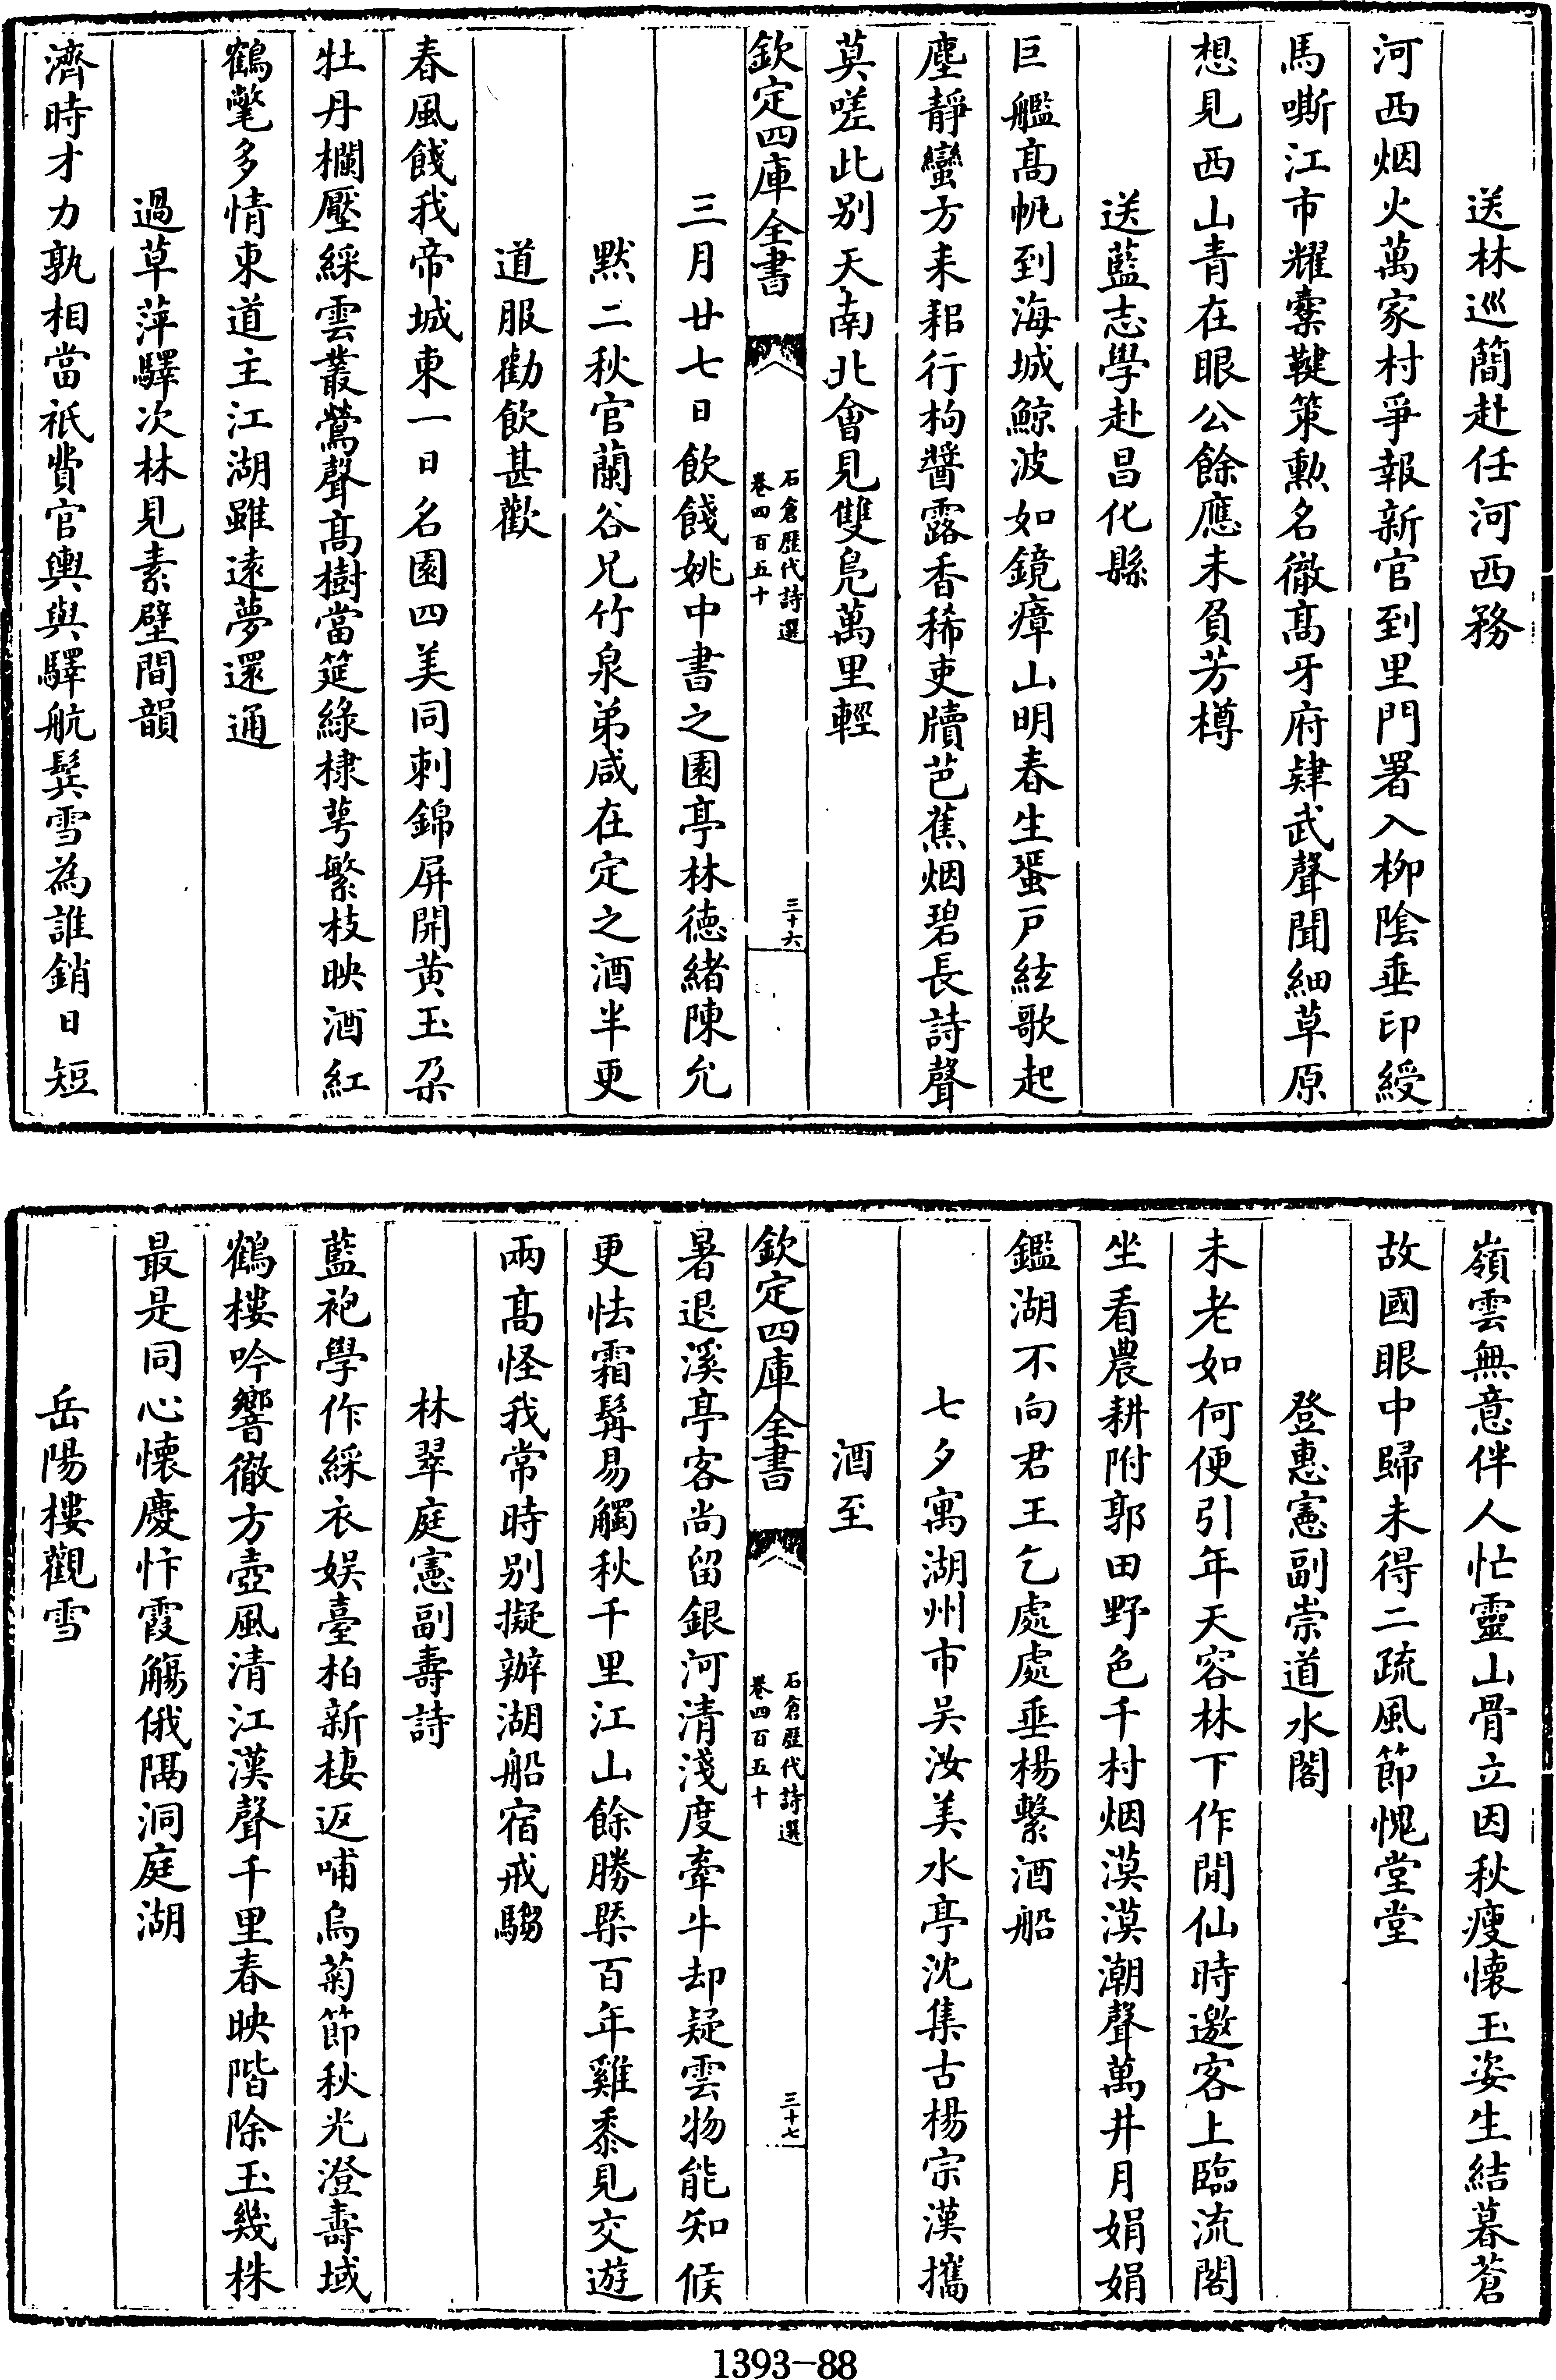 送林巡簡赴任河西務
河西烟火萬家村爭報新官到里門署入柳陰垂印綬
馬嘶江市耀櫜鞬策勲名徹髙牙府肄武聲聞細草原
想見西山青在眼公餘應未負芳樽
送藍志學赴昌化縣
巨艦髙帆到海城鯨波如鏡瘴山明春生蜑戸絃歌起
塵靜蠻方耒耜行枸醬露香稀吏牘芭蕉烟碧長詩聲
莫嗟此别天南北會見雙鳬萬里輕
欽定四庫全書
石倉歴代詩選
卷四百五十
三十六
三月廿七日飲餞姚中書之園亭林德緒陳允
默二秋官蘭谷兄竹泉弟咸在定之酒半更
道服勸飲甚歡
春風餞我帝城東一日名園四美同刺錦屏開黄玉朶
牡丹欄壓綵雲叢鶯聲髙樹當筵緑棣萼繁枝映酒紅
鶴氅多情東道主江湖雖逺夢還通
過草萍驛次林見素壁間韻
濟時才力孰相當祇費官輿與驛航鬂雪為誰銷日短
嶺雲無意伴人忙靈山骨立因秋瘦懐玉姿生結暮蒼
故國眼中歸未得二疏風節愧堂堂
登惠憲副崇道水閣
未老如何便引年天容林下作閒仙時邀客上臨流閣
坐看農耕附郭田野色千村烟漠漠潮聲萬井月娟娟
鑑湖不向君王乞處處垂楊繫酒船
七夕寓湖州市吴汝美水亭沈集古楊宗漢攜
酒至
欽定四庫全書
石倉歴代詩選
卷四百五十
三十七
暑退溪亭客尚留銀河清淺度牽牛却疑雲物能知候
更怯霜髯易觸秋千里江山餘勝槩百年雞黍見交遊
兩髙怪我常時别擬辦湖船宿戒騶
林翠庭憲副壽詩
藍袍學作綵衣娱臺柏新棲返哺烏菊節秋光澄壽域
鶴樓吟響徹方壺風清江漢聲千里春映階除玉幾株
最是同心懐慶忭霞觴俄隔洞庭湖
岳陽樓觀雪
1393-88